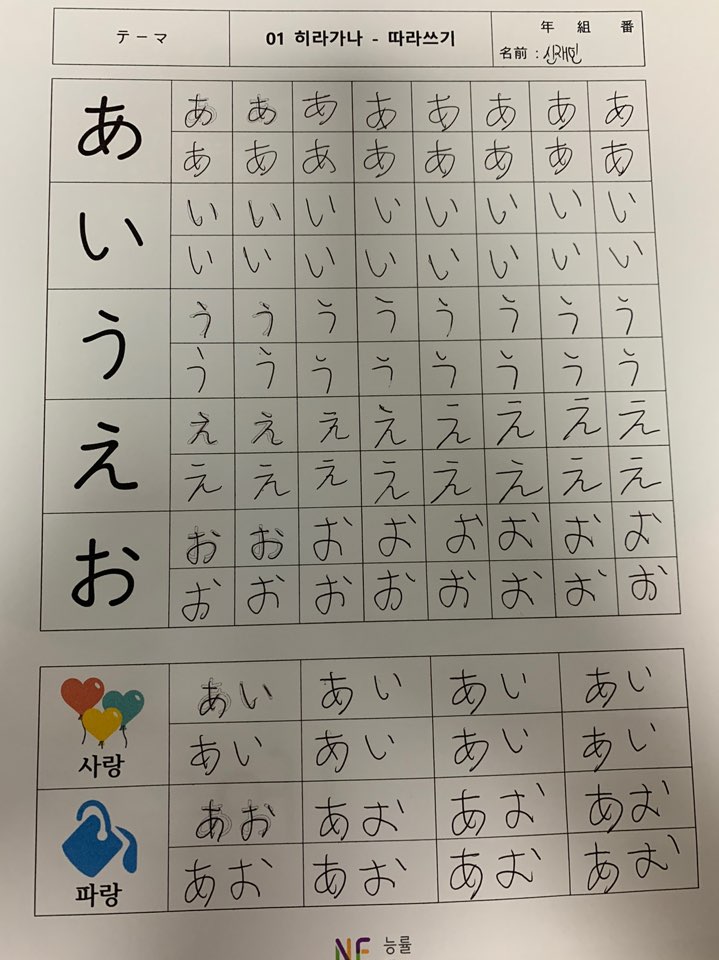 テーマ
01 히라가나 - 따라쓰기
年 組 番
名前 : 신래민
あ あ あ あ あ あ あ あ あ
あ あ あ あ あ あ あ あ
い い い い い い い い い
い い い い い い い い
う う う う う う う う う
う う う う う う う う
え え え え え え え え え
え え え え え え え え
お お お お お お お お お
お お お お お お お お
あい あい あい あい
사랑
あい あい あい あい
あお あお あお あお
파랑
あお あお あお あお
NE 능률